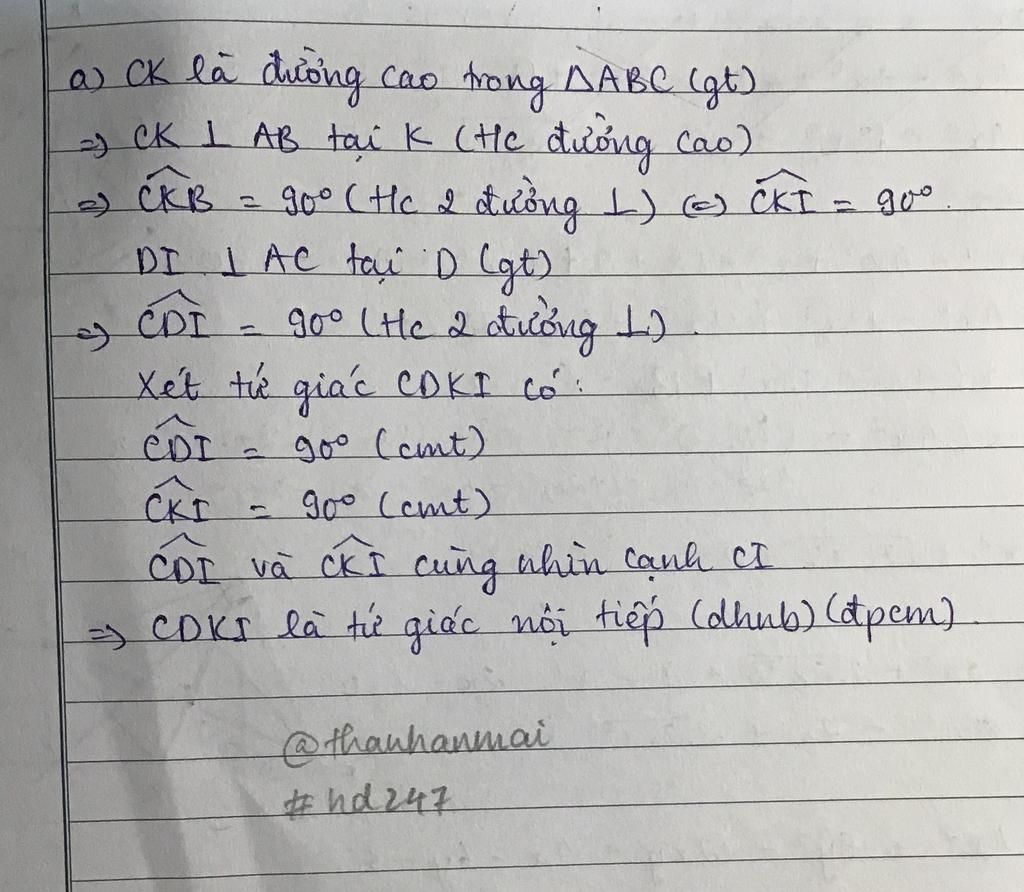 a) CK là đường cao trong ΔABC (gt)
=> CK ⊥ AB tại K (Hc đường cao)
=> \widehat{CKB} = 90° (Hc 2 đường ⊥) <=> \widehat{CKI} = 90°.
DI ⊥ AC tại D (gt)
=> \widehat{CDI} = 90° (Hc 2 đường ⊥).
Xét tứ giác CDKI có:
\widehat{CDI} = 90° (cmt)
\widehat{CKI} = 90° (cmt)
\widehat{CDI} và \widehat{CKI} cùng nhìn cạnh CI
=> CDKI là tứ giác nội tiếp (dhnb) (đpcm).
@thanhanmai
#hd247